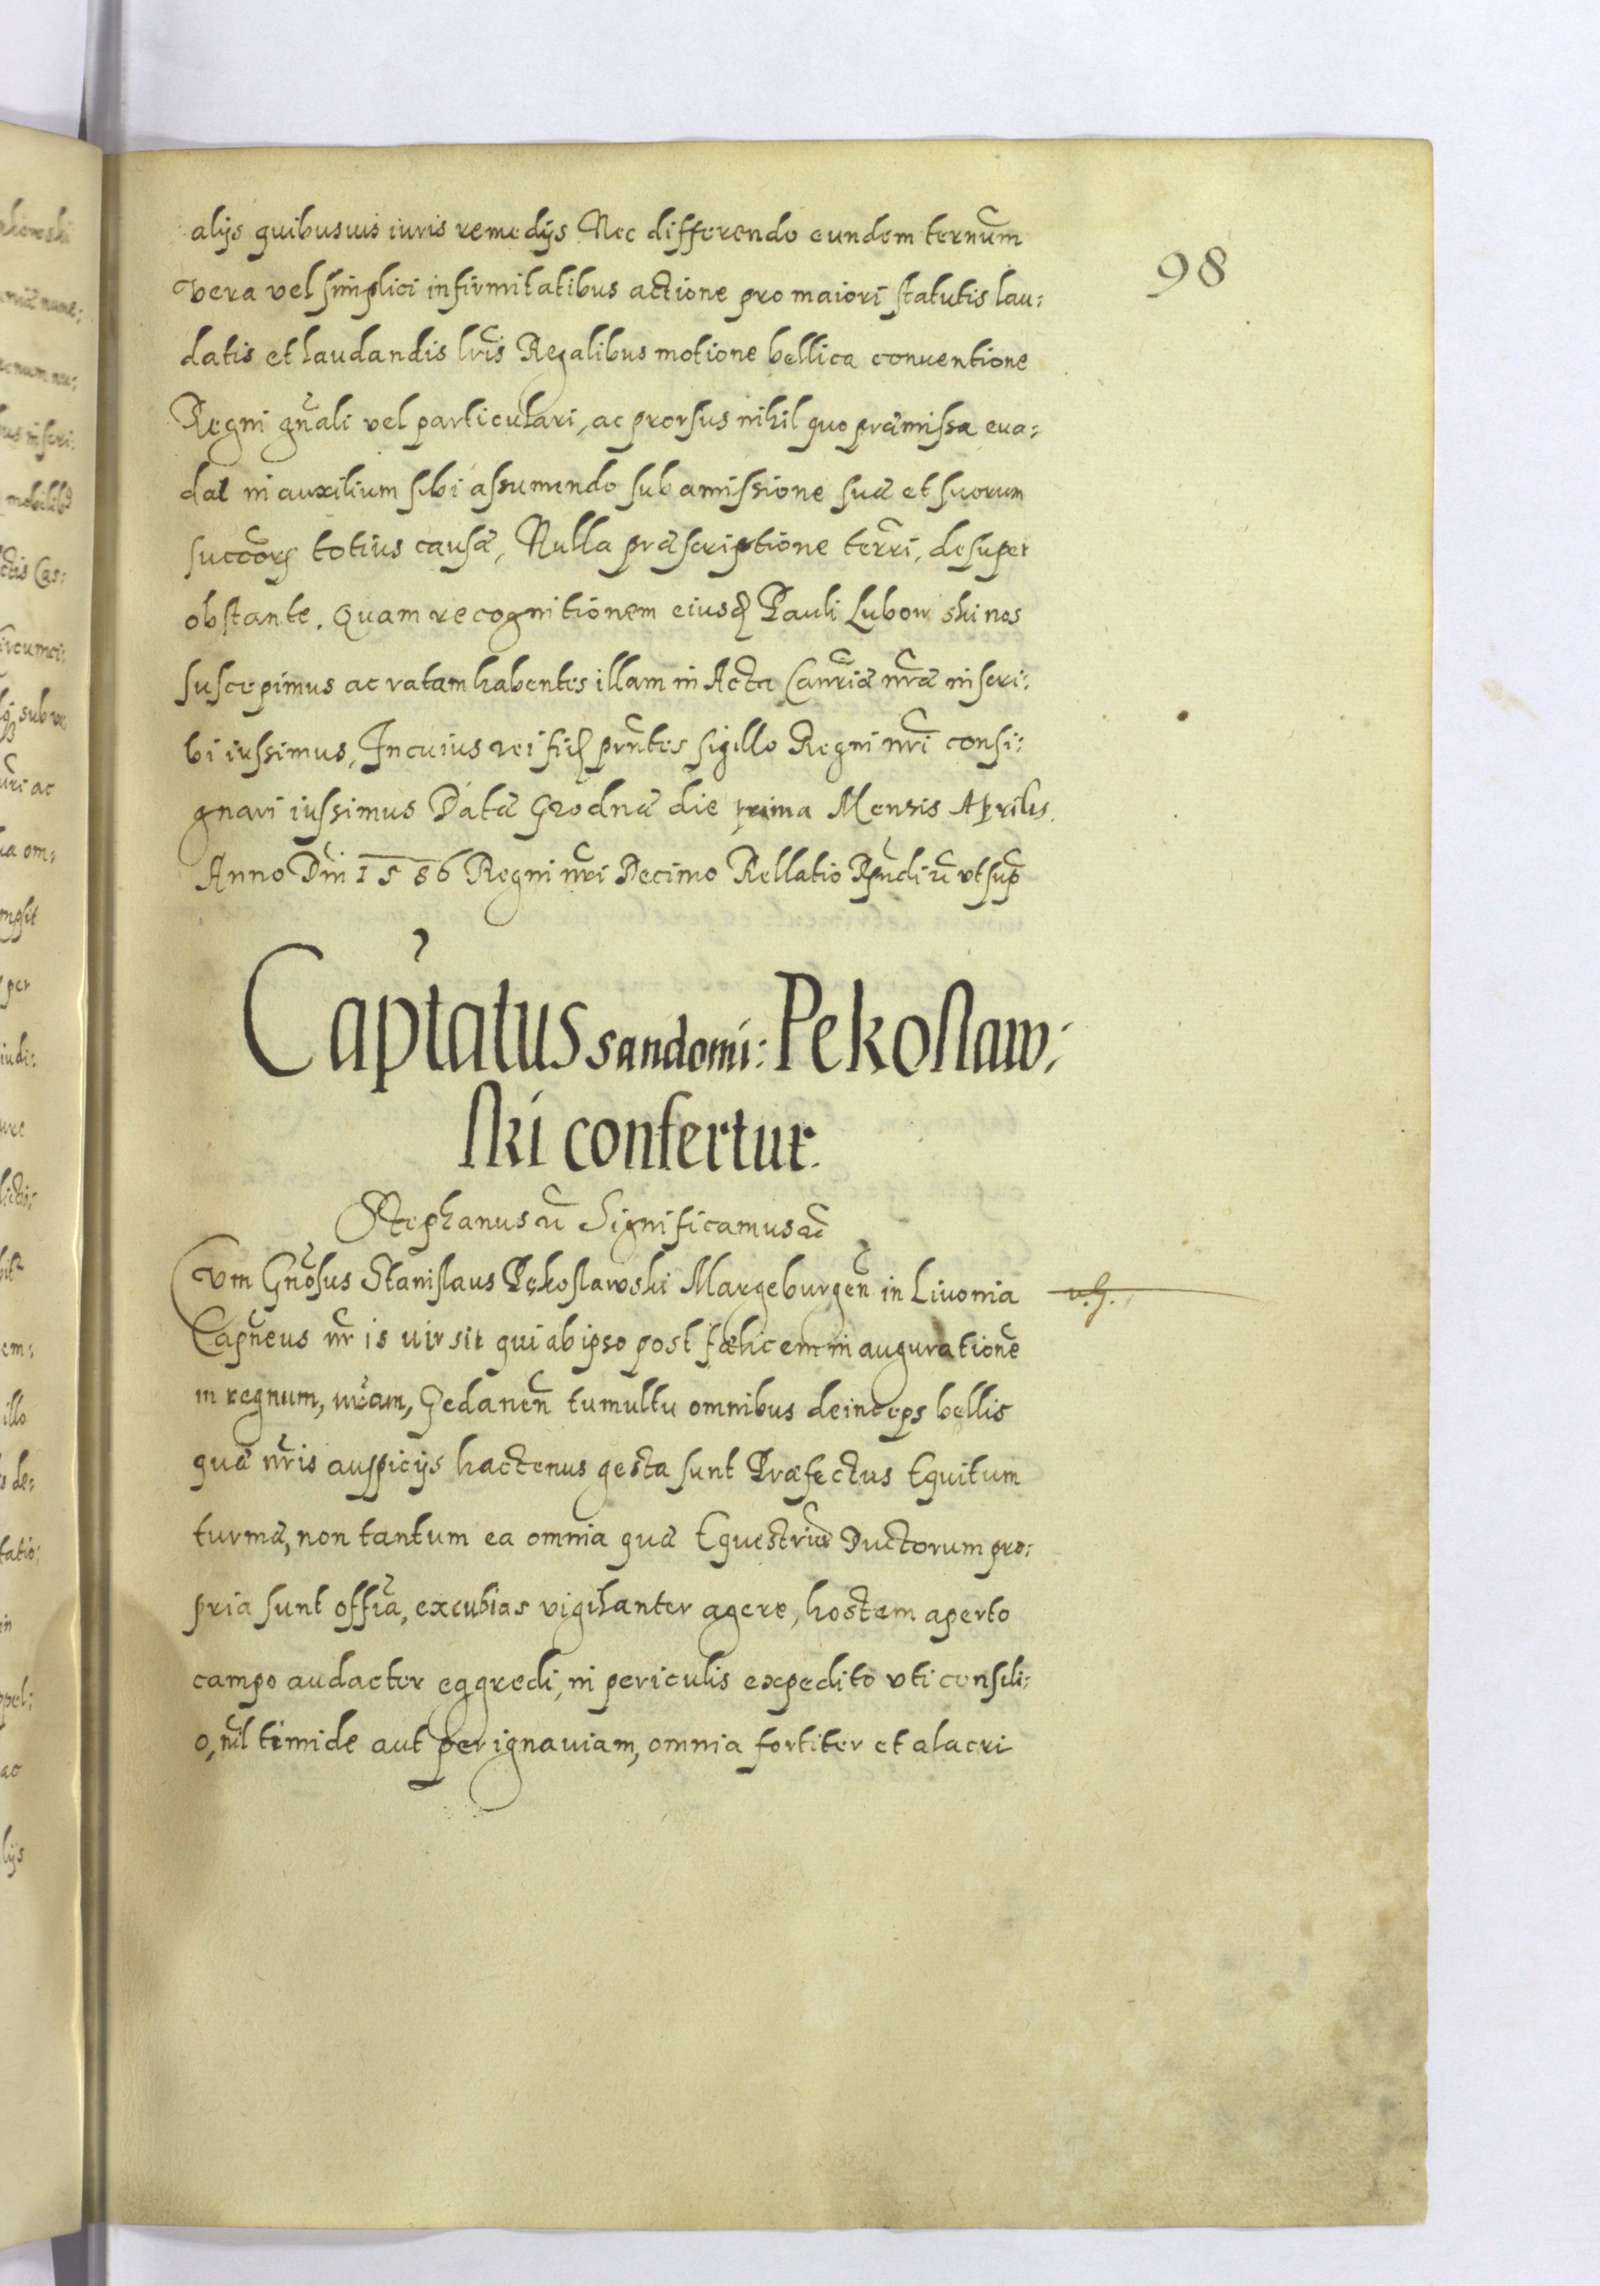 98
alijs quibusuis iuris remedijs Nec differendo eundem ternum
vera vel simplici infirmitatibus actione pro maiori statutis lau:
datis et laudandis lris Regalibus motione bellica conuentione
Regni gnali vel particulari, ac prorsus nihil quo præmissa eua:
dat in auxilium sibi assumendo sub amissione suæ et suorum
succorꝫ totius causæ, Nulla præscriptione terri, desuper
obstante. Quam recognitionem eiusd Pauli Lubowski nos
suscepimus ac ratam habentes illam in Acta Canriæ nræ inscri:
bi iussimus, In cuius rei fid prntes sigillo Regni nri consi:
gnari iussimus Datæ Grodnæ die prima Mensis Aprilis.
Anno Dni 1586 Regni nri Decimo Rellatio Rndi ut sup
Captatus sandomi: Pekoslaw:
ski confertur.
Stephanus Significamus
Cum Gnosus Stanislaus Pękoslawski Margeburgen in Liuonia
Capneus nr is uir sit qui ab ipso post fælicem in augurationē
in regnum, nram, Gedanen tumultu omnibus deinceps bellis
quæ nris auspicijs hactenus gesta sunt Præfectus Equitum
turmæ, non tantum ea omnia quæ Equestriū Ductorum pro:
pria sunt offia, excubias vigilanter agere, hostem aperto
campo audacter eggredi, in periculis expedito vti consili:
o, nil timide aut per ignauiam, omnia fortiter et alacri